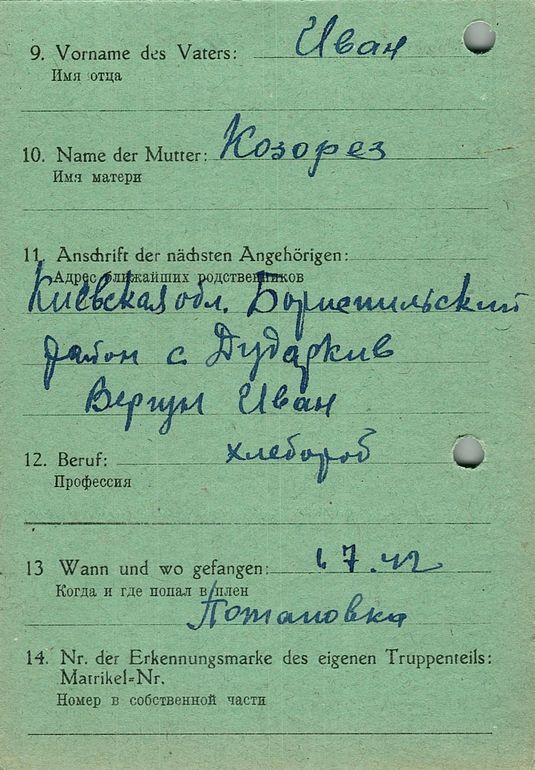 9. Vorname des Vaters: Иван
Имя отца
10. Name der Mutter: Козорез
Имя матери
11. Anschrift der nächsten Angehörigen:
Адрес ближайших родственников
Киевская обл. Бориспильский
район с. Дударкив
Вергун Иван
12. Beruf: хлебороб
Профессия
13 Wann und wo gefangen: 7.42
Когда и где попал в плен
Потаповка
14. Nr. der Erkennungsmarke des eigenen Truppenteils:
Matrikel-Nr.
Номер в собственной части